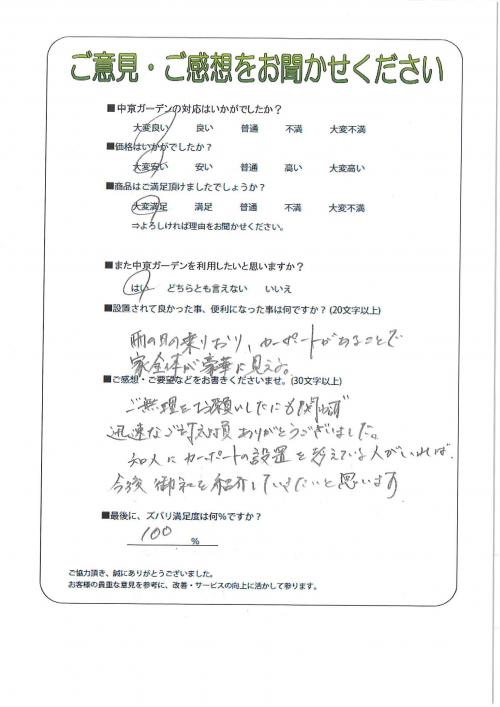 ご意見・ご感想をお聞かせください
■中京ガーデンの対応はいかがでしたか？
大変良い 良い 普通 不満 大変不満
■価格はいかがでしたか？
大変安い 安い 普通 高い 大変高い
■商品はご満足頂けましたでしょうか？
大変満足 満足 普通 不満 大変不満
⇒よろしければ理由をお聞かせください。
■また中京ガーデンを利用したいと思いますか？
はい どちらとも言えない いいえ
■設置されて良かった事、便利になった事は何ですか？(20文字以上)
雨の日の乗りおり、カーポートがあることで
家全体が豪華に見える。
■ご感想・ご要望などをお書きくださいませ。(30文字以上)
ご無理をお願いしたにも関わらず
迅速なご対応ありがとうございました。
知人にカーポートの設置を考えている人がいれば、
今後御社を紹介していきたいと思います
■最後に、ズバリ満足度は何%ですか？
100 %
ご協力頂き、誠にありがとうございました。
お客様の貴重な意見を参考に、改善・サービスの向上に活かして参ります。